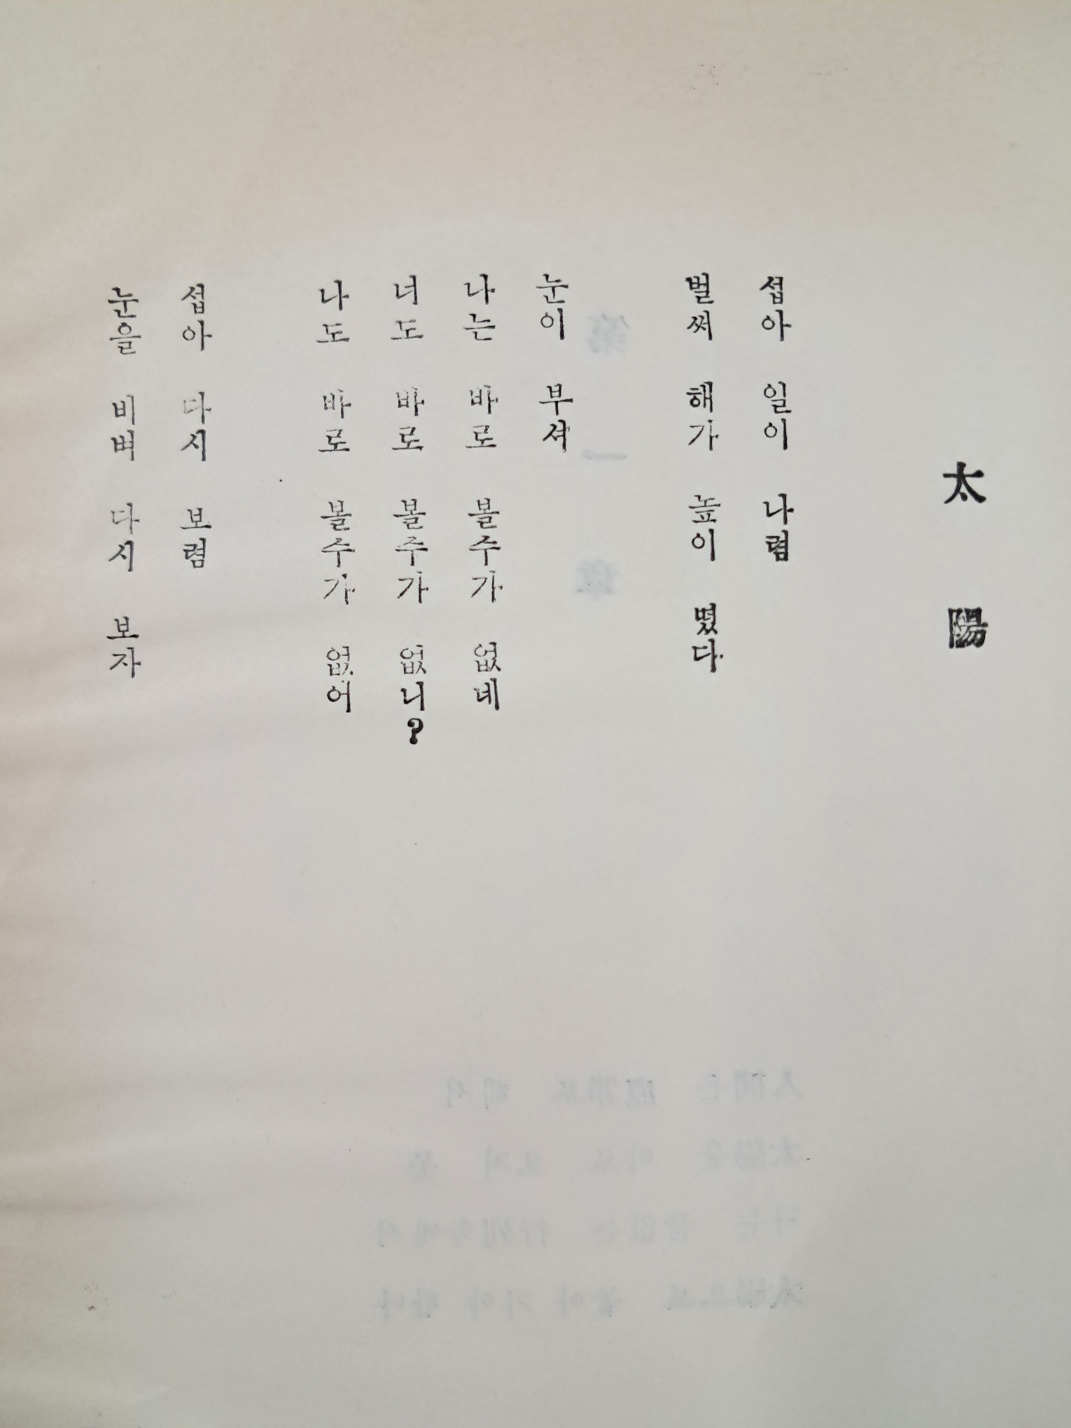 太陽
섭아 일이 나렴
벌써 해가 높이 떴다
눈이 부셔
나는 바로 볼수가 없네
너도 바로 볼수가 없니?
나도 바로 볼수가 없어
섭아 다시 보렴
눈을 비벼 다시 보자
第一章